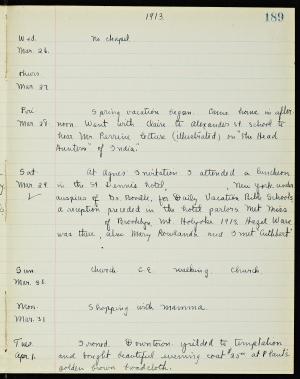 1913.
189
Wed. no chapel
Mar. 26.
Thurs.
Mar. 27.
Fri Spring vacation began. Came home in after-
Mar. 28 noon. Went with Claire to Alexander st. school to
hear Mr. Perrine lecture (illustrated) on "The Head
Hunters" of India.
Sat. At Agnes' invitation I attended a luncheon
Mar. 29. in the St. Dennis hotel, New York under
auspices of Dr. Boville, for Daily Vacation Bible Schools
a reception preceded in the hotel parlors. Met Miss
of Brooklyn, Mt. Holyoke 1913. Hazel Ware
was there also Mary Rowlands and I met Cuthbert
Sun Church C.E. walking. Church.
Mar. 30.
Mon. Shopping with mamma.
Mar. 31
Tues. I ironed. Downtown yielded to temptation
Apr. 1. and bought beautiful evening coat $25.00 at Plaut's
golden brown broadcloth.